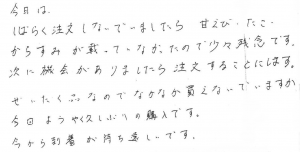 今日は、
しばらく注文しないでいましたら 甘えび・たこ・
からすみが載っていなかったので少々残念です。
次に機会がありましたら注文することにします。
ぜいたく品なのでなかなか買えないでいますが
今回ようやく久しぶりの購入です。
今から到着が待ち遠しいです。